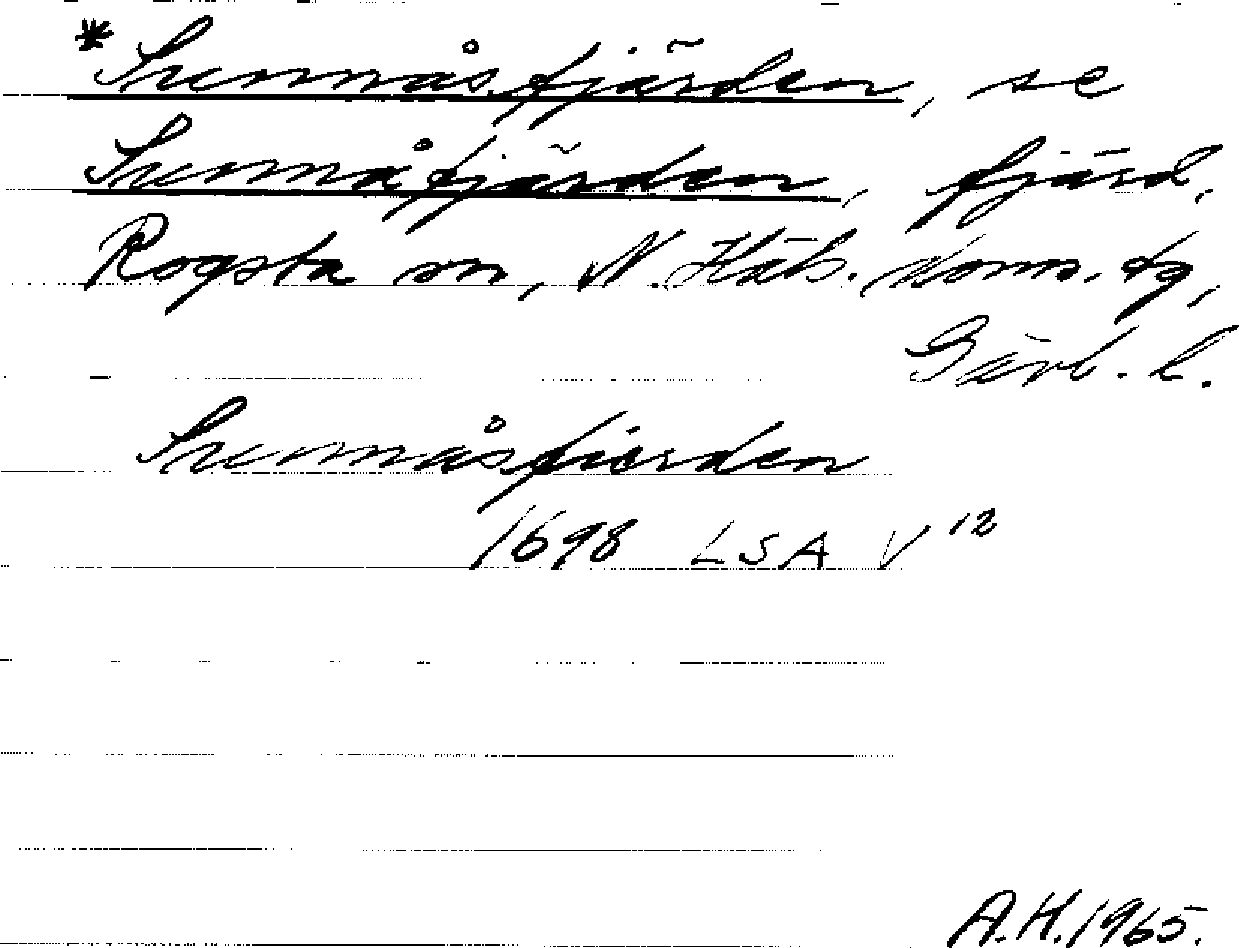 *Sunnåsfjärden, se
Sunnåfjärden, fjärd,
Rogsta sn, N. Häls. doms. tg,
Gävl. l.
Sunnåsfiorden
1698 LSA V 12
A.H. 1965.